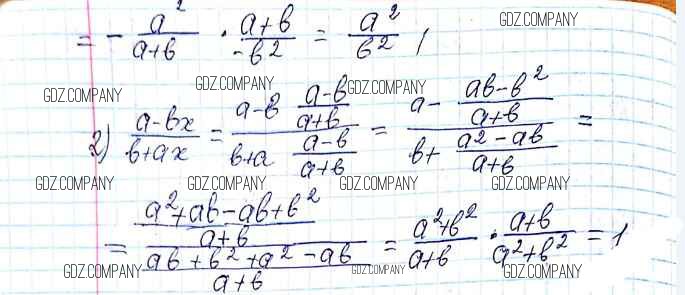 = - a²/(a+b) · (a+b)/(-b²) = a²/b² /
GDZ.COMPANY
GDZ.COMPANY GDZ.COMPANY GDZ.COMPANY
2) (a-bx)/(b+ax) = (a-b (a-b)/(a+b))/(b+a (a-b)/(a+b)) = (a - (ab-b²)/(a+b))/(b + (a²-ab)/(a+b)) =
GDZ.COMPANY GDZ.COMPANY GDZ.COMPANY GDZ.COMPANY
= ((a²+ab-ab+b²)/(a+b))/((ab+b²+a²-ab)/(a+b)) = (a²+b²)/(a+b) · (a+b)/(a²+b²) = 1
GDZ.COMPANY GDZ.COMPANY GDZ.COMPANY GDZ.COMPANY